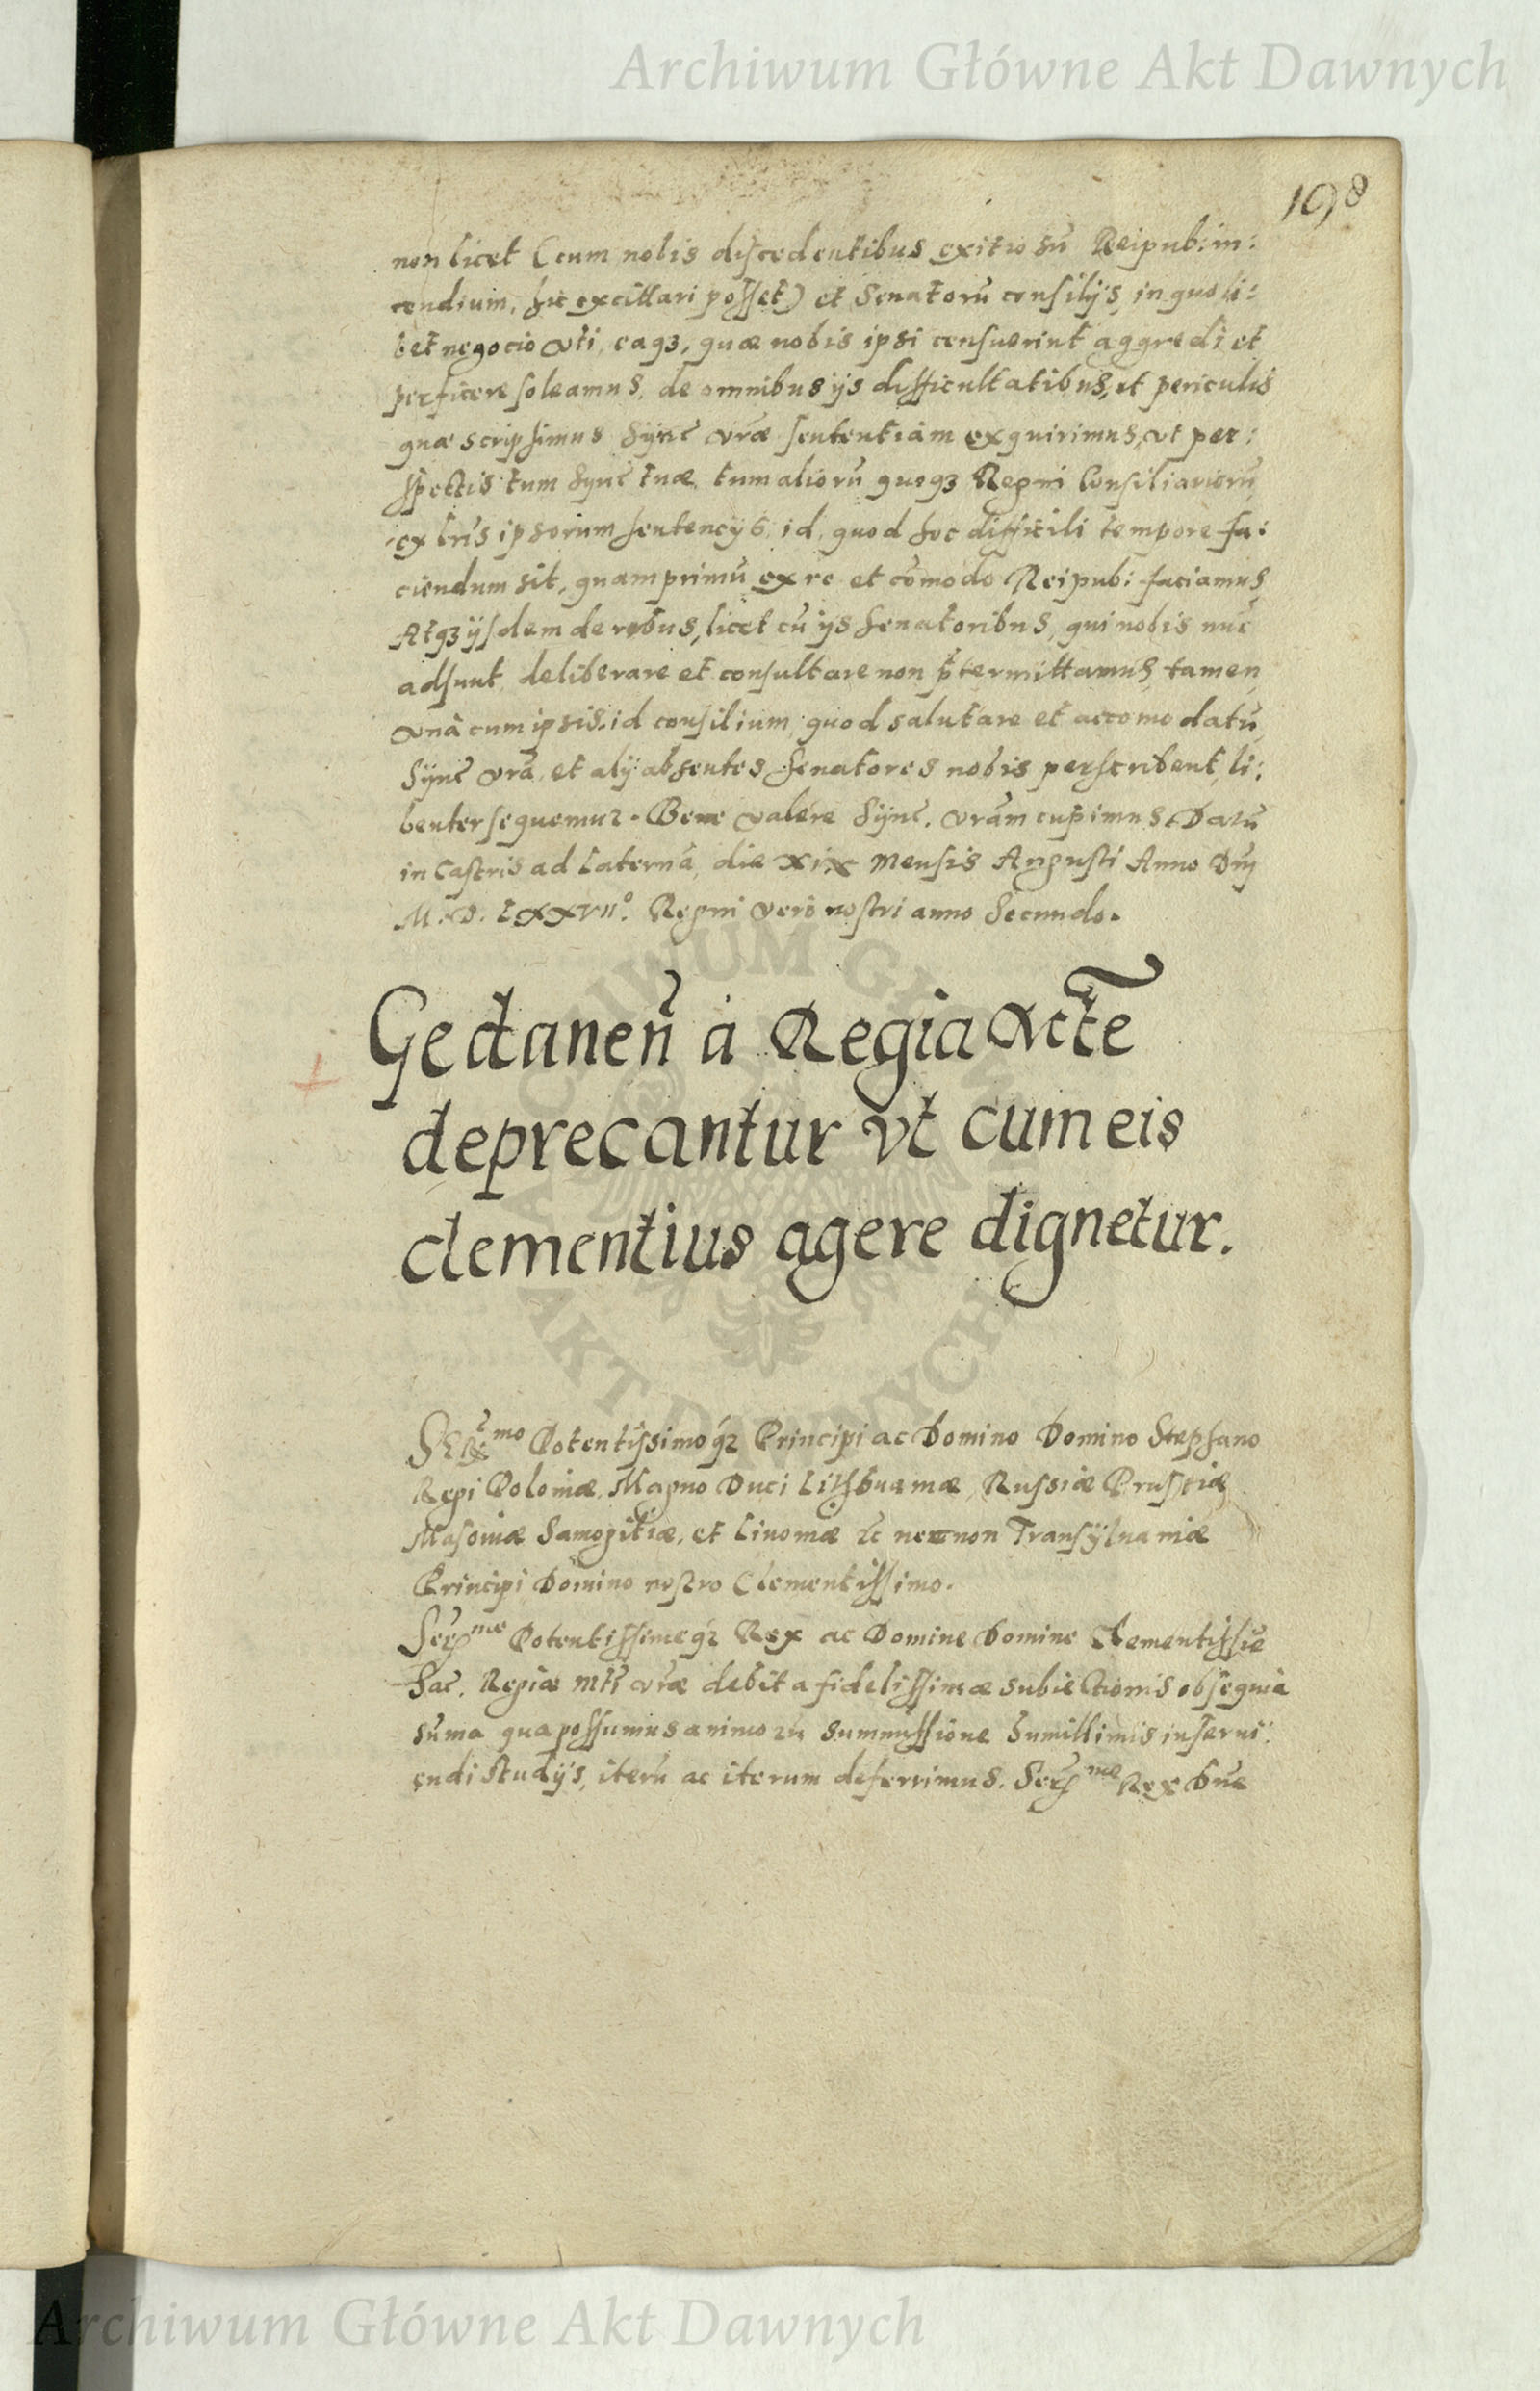 Archiwum Główne Akt Dawnych
198
non licet (cum nobis discedentibus exitiosũ Reipub: in:
cendium, hic excittari posset) et Senatorũ consilijs, in quoli:
bet negocio vti, eaqȝ, quæ nobis ipsi censuerint aggredi et
perficere soleamus, de omnibus ijs difficultatibus, et periculis
quæ scripsimus Sync̃ vr̃æ sententiam exquirimus, vt per:
spectis tum Sync̃ tuæ, tum aliorũ quoqȝ Regni Consiliariorũ
ex lr̃is ipsorum sentencijs, id, quod hoc difficili tempore fa:
ciendum sit, quamprimũ ex re et cõmodo Reipub: faciamus,
Atqȝ ijsdem de rebus, licet cũ ijs Senatoribus, qui nobis nũc
adsunt, deliberare et consultare non p̃termittamus, tamen
vnà cum ipsis, id consilium, quod salutare et accomodatũ
Sync̃ vr̃a, et alij absentes Senatores nobis perscribent, li:
benter sequemur. Bene valere Sync̃. vr̃am cupimus. Datũ
in Castris ad Laternã, die xix mensis Augusti Anno Dñj
M. D. LXXVII°. Regni vero nostri anno Secundo.
Gedaneñ à Regia Mc̃te
deprecantur vt cum eis
clementius agere dignetur.
Potentissimoqȝ Principi ac Domino Domino Stephano
Regi Poloniæ, Magno Duci Lithuaniæ, Russiæ Prussiæ
Masoviæ Samogitiæ, et Livoniæ ꝛc necnon Transylvaniæ
Principi Domino nostro Clementissimo.
Potentissimeqȝ Rex ac Domine Domine Clementissie
Sac. Regiæ Mt̃i vr̃æ debita fidelissimæ subiectionis obsequia
sũma qua possumus animorũ summissione humillimis inservi:
endi studijs, iterũ ac iterum deferrimus. Rex Dñe
ARCHIWUM GŁÓWNE AKT DAWNYCH
Archiwum Główne Akt Dawnych